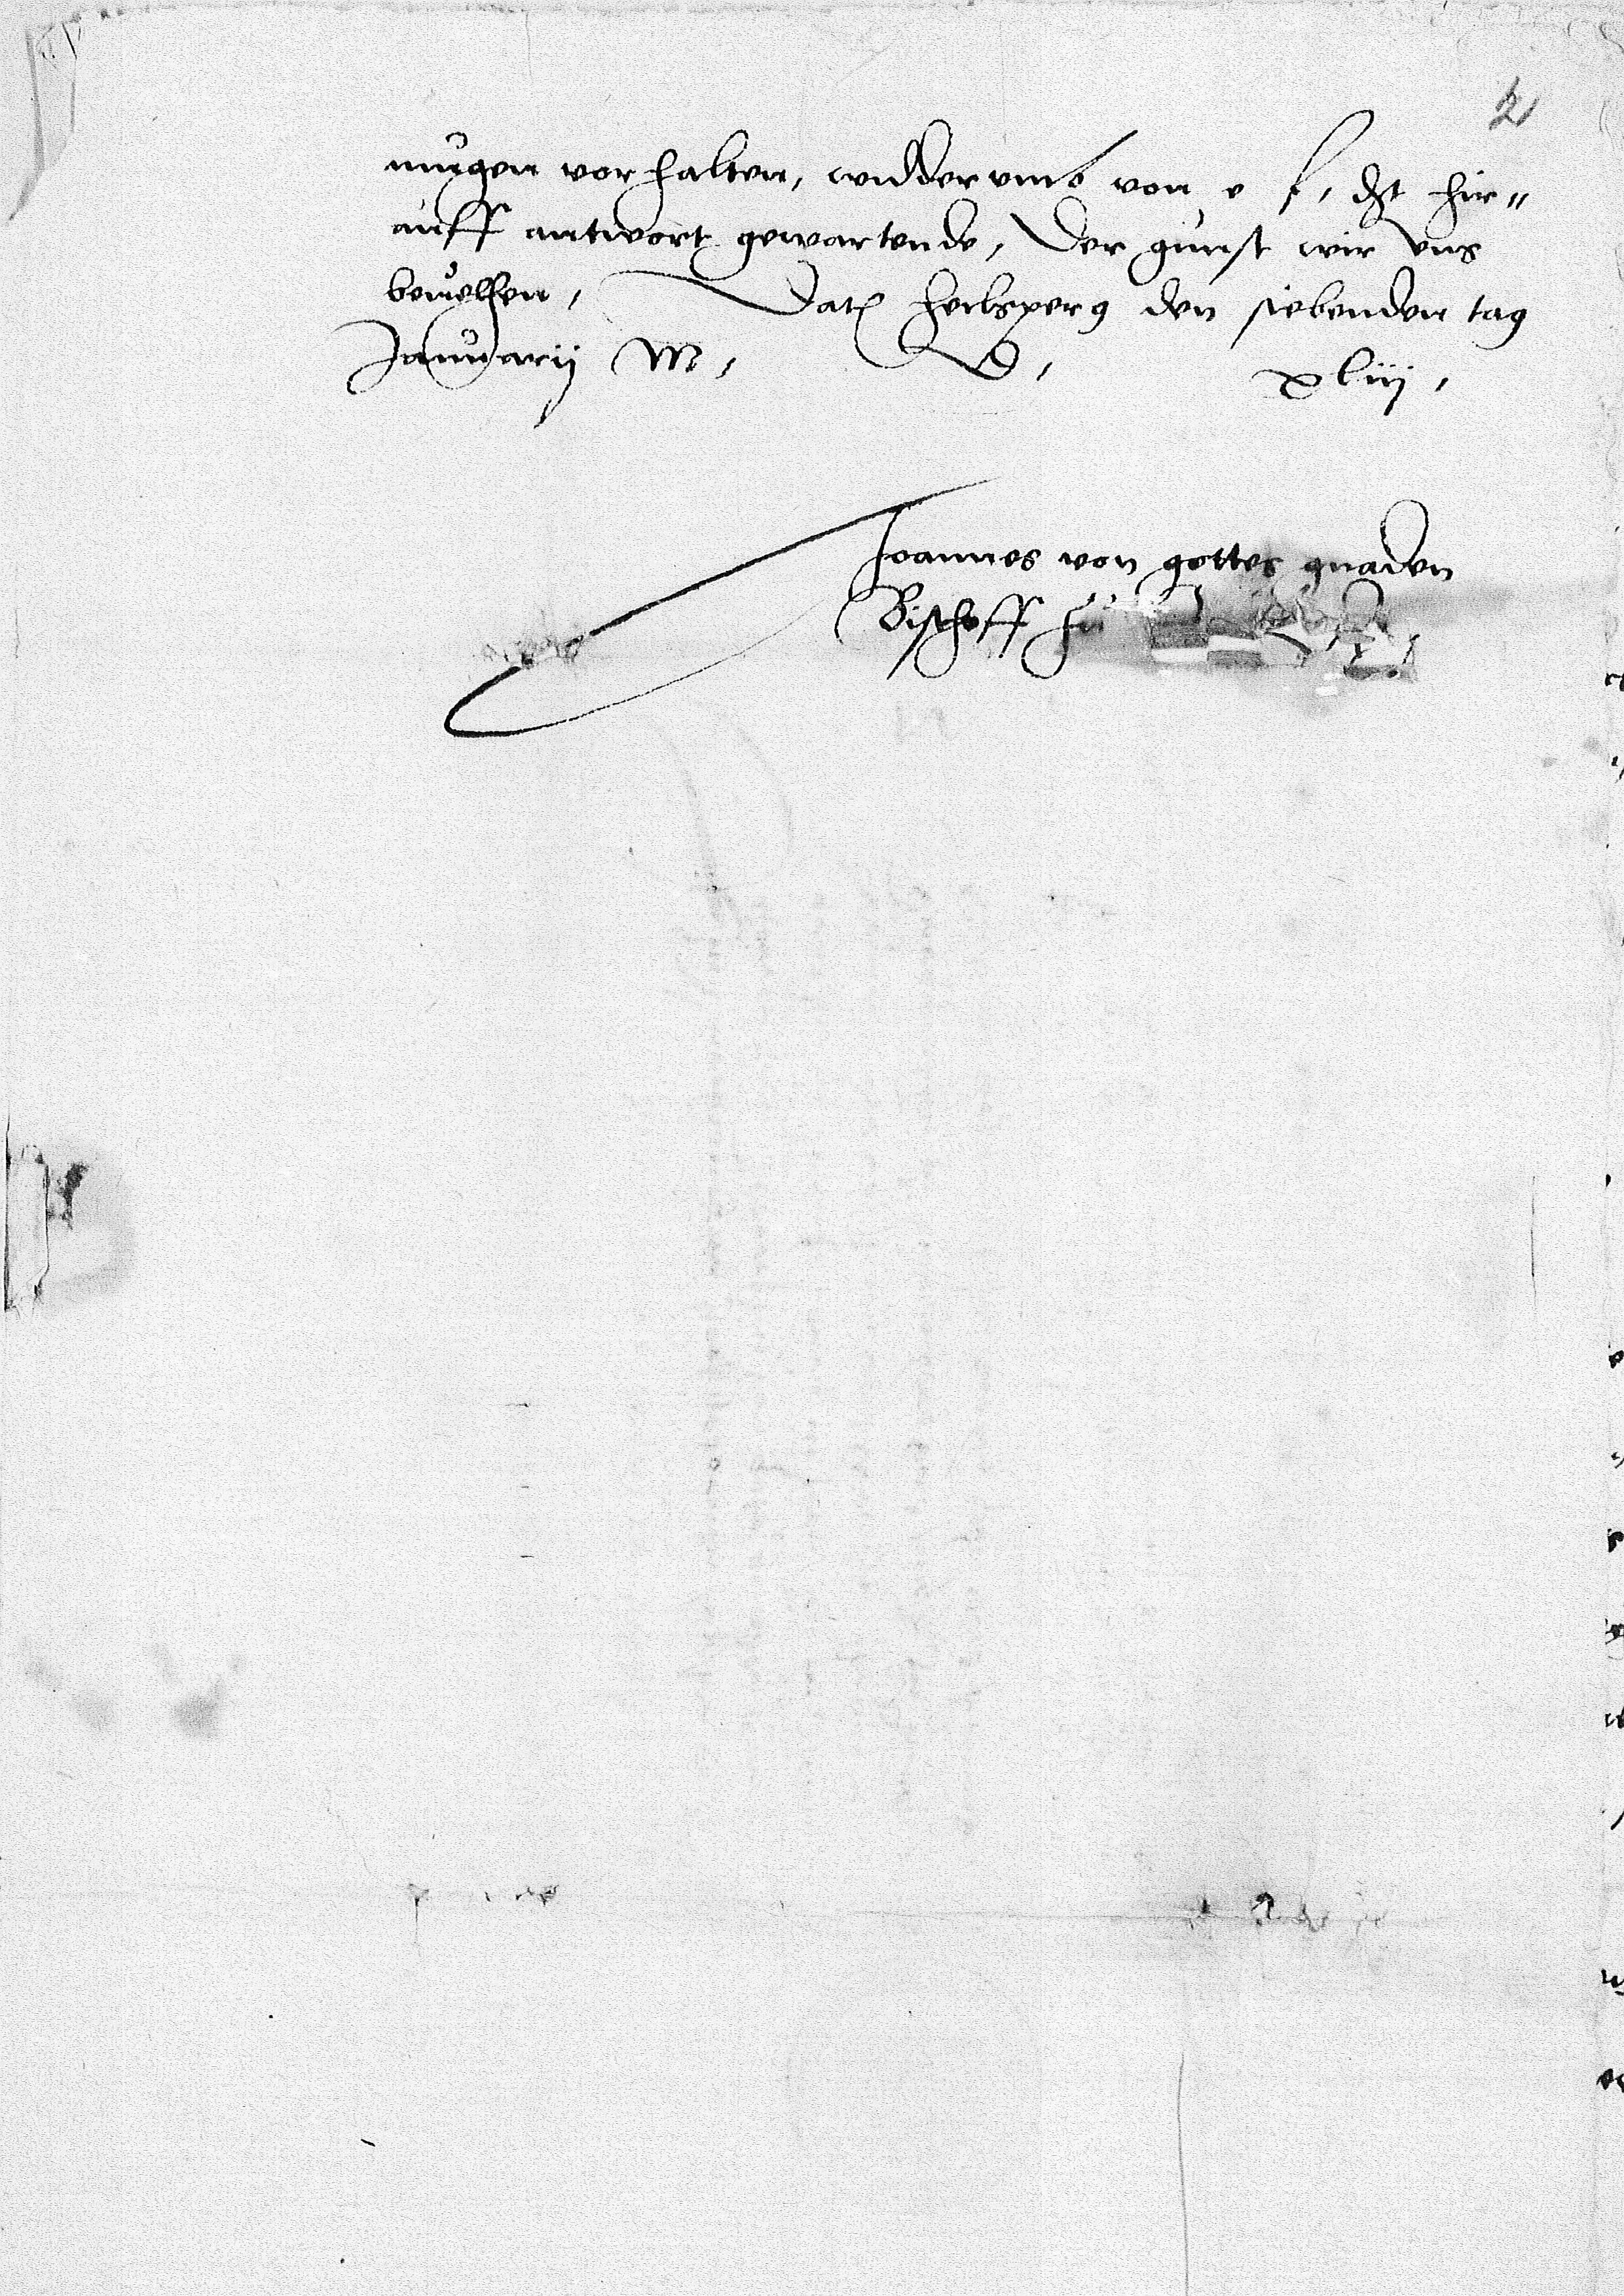 2
mugen vorhalten, widdervmb von e f, dht hir=
auff antwort gewartende, Der gunst wir vns
bevelhen, Dat heilsperg den siebenden tag
Januarij M, D, xliij,
Joannes von gottes gnaden
Bischoff